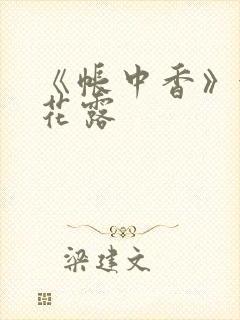 《帐中香》
花露
梁建文